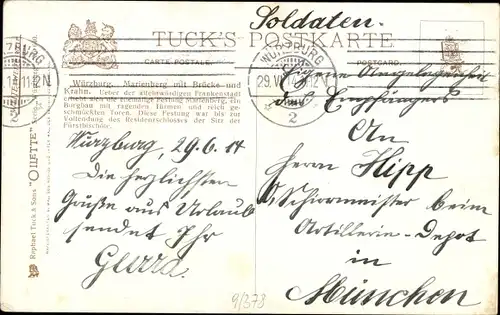 Soldaten.
TUCK'S POSTKARTE
CARTE POSTALE.
POSTCARD.
WÜRZBURG
29.VI
2
Würzburg. Marienberg mit Brücke und
Krahn. Ueber der altehrwürdigen Frankenstadt
erhebt sich die einstige Festung Marienberg, ein
Burgbau mit ragenden Türmen und reich ge-
schmückten Toren. Diese Festung war bis zur
Vollendung des Residenzschlosses der Sitz der
Fürstbischöfe.
Raphael Tuck & Sons "OILETTE"
Würzburg, 29.6.14
Die herzlichsten
Grüße aus Urlaub
sendet Ihr
Eigene Angelegenheit
des Empfängers
An
Herrn Hipp
Schirrmeister beim
Artillerie-Depot
in
München
9/378